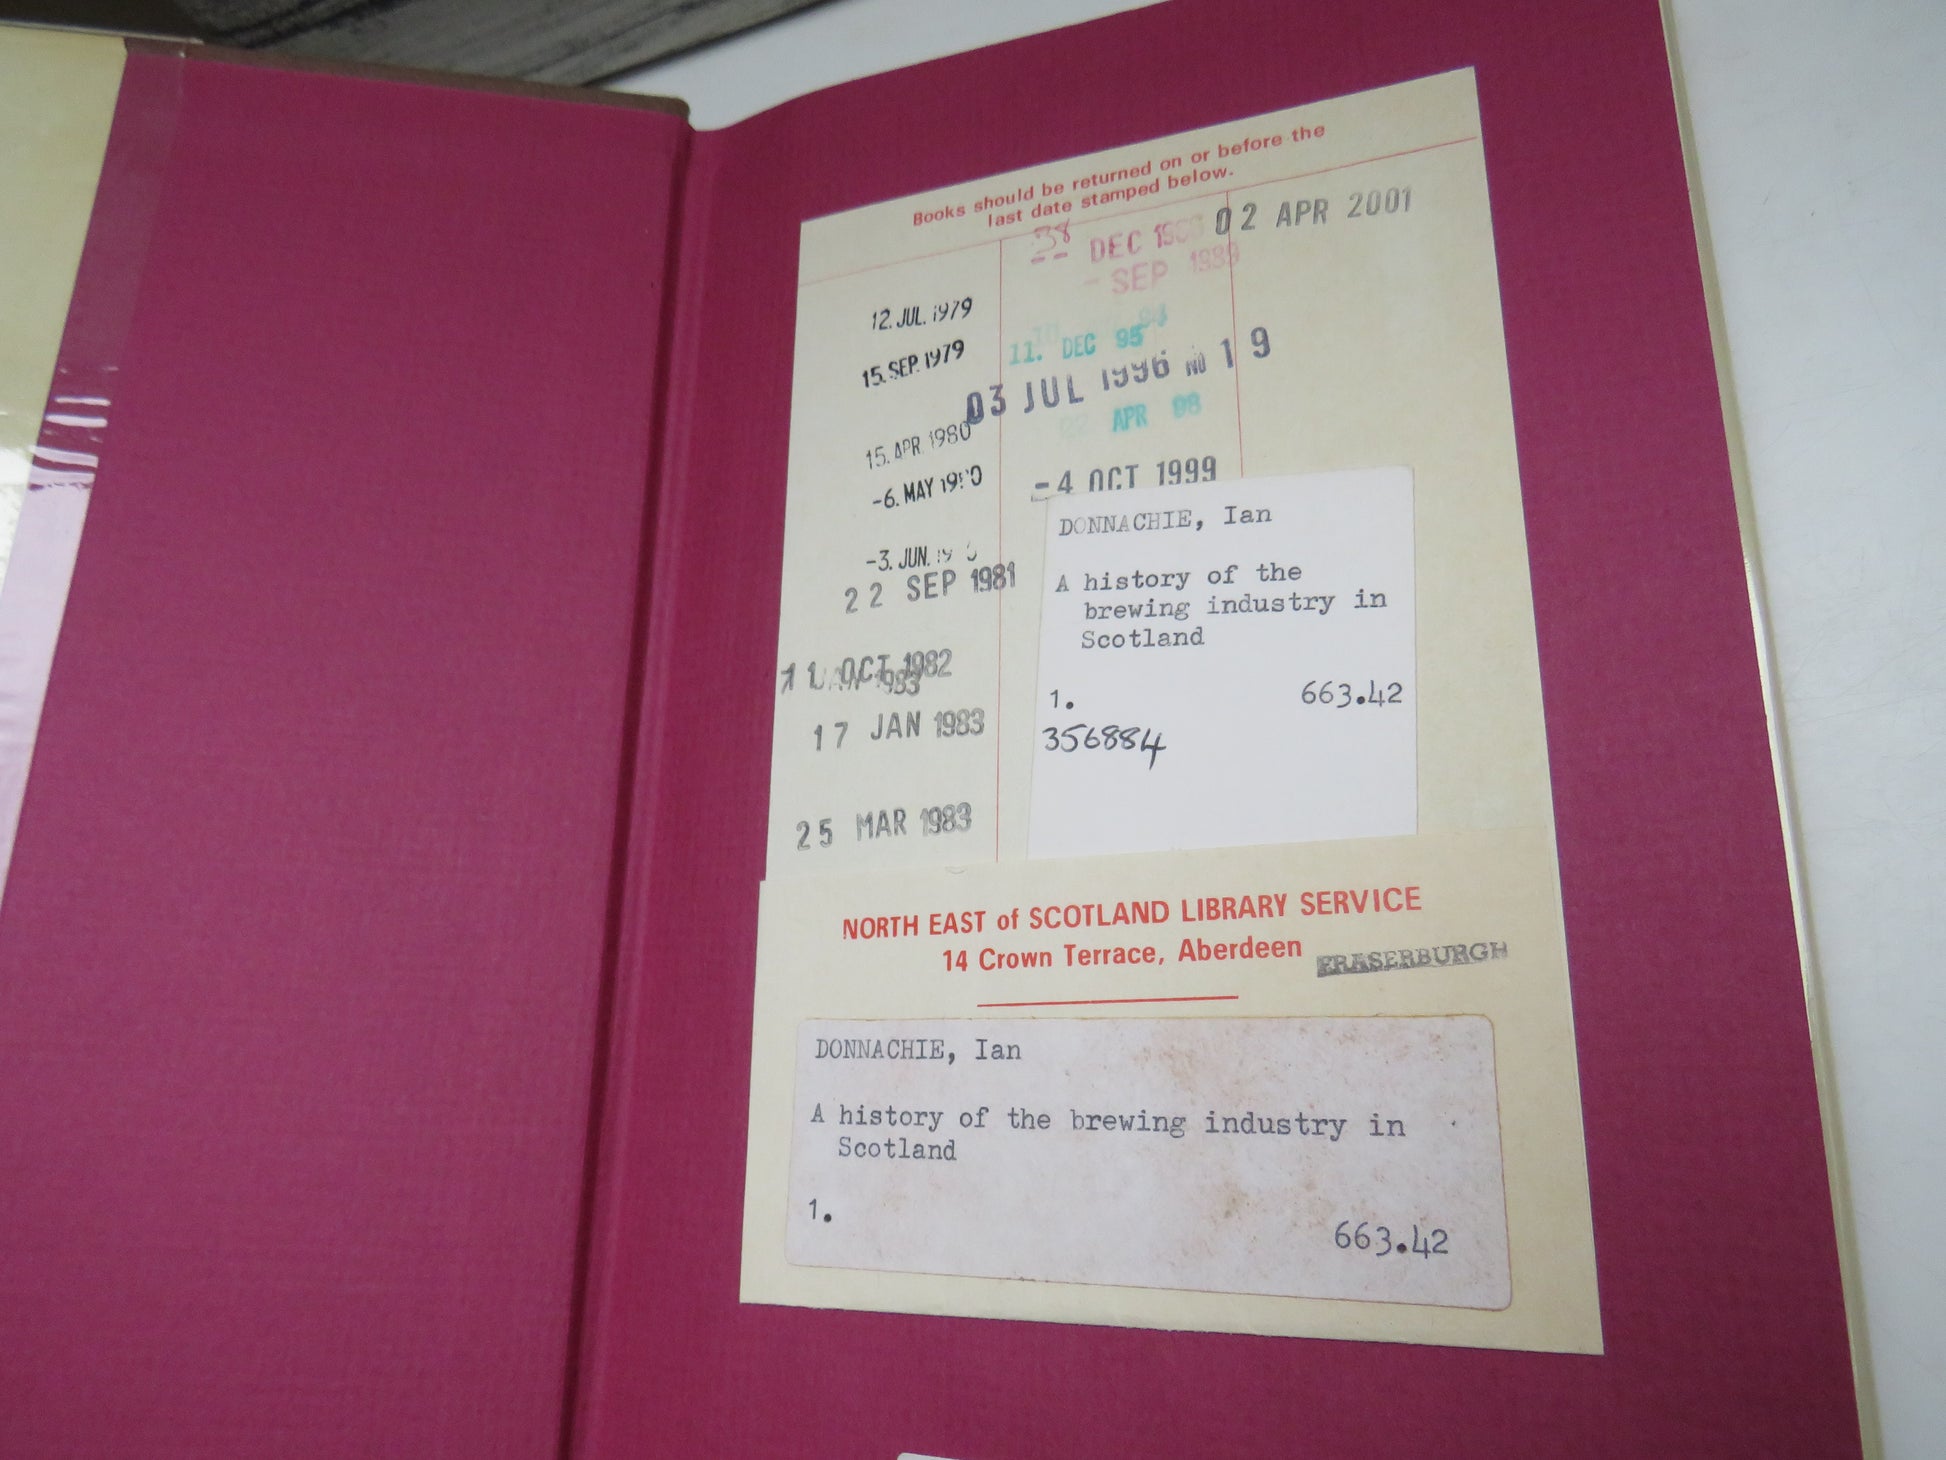 Books should be returned on or before the
last date stamped below.
12. JUL. 1979
15. SEP. 1979
15. APR. 1980
-6. MAY
-3. JUN.
22 SEP 1981
11 OCT 1982
1983
17 JAN 1983
25 MAR 1983
38
-- DEC
- SEP 1989
11. DEC 95
03 JUL 1996 NO 19
APR 98
-4 OCT 1999
02 APR 2001
DONNACHIE, Ian
A history of the
brewing industry in
Scotland
1. 663.42
356884
NORTH EAST of SCOTLAND LIBRARY SERVICE
14 Crown Terrace, Aberdeen
FRASERBURGH
DONNACHIE, Ian
A history of the brewing industry in
Scotland
1.
663.42